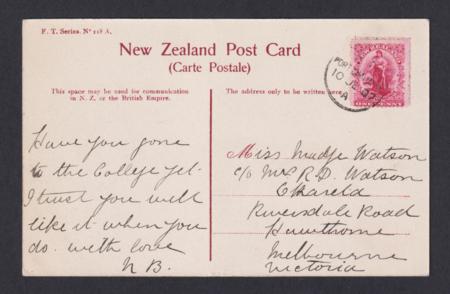 F. T. Series. Nº 118 A.
New Zealand Post Card
(Carte Postale)
This space may be used for communication
in N. Z. or the British Empire.
The address only to be written here
ONE PENNY
10 JE 07
A
Have you gone
to the College yet.
I trust you will
like it when you
do. with love
N B.
Miss Madge Watson
c/o Mrs R. D. Watson
Riversdale Road
Hawthorne
Melbourne
Victoria